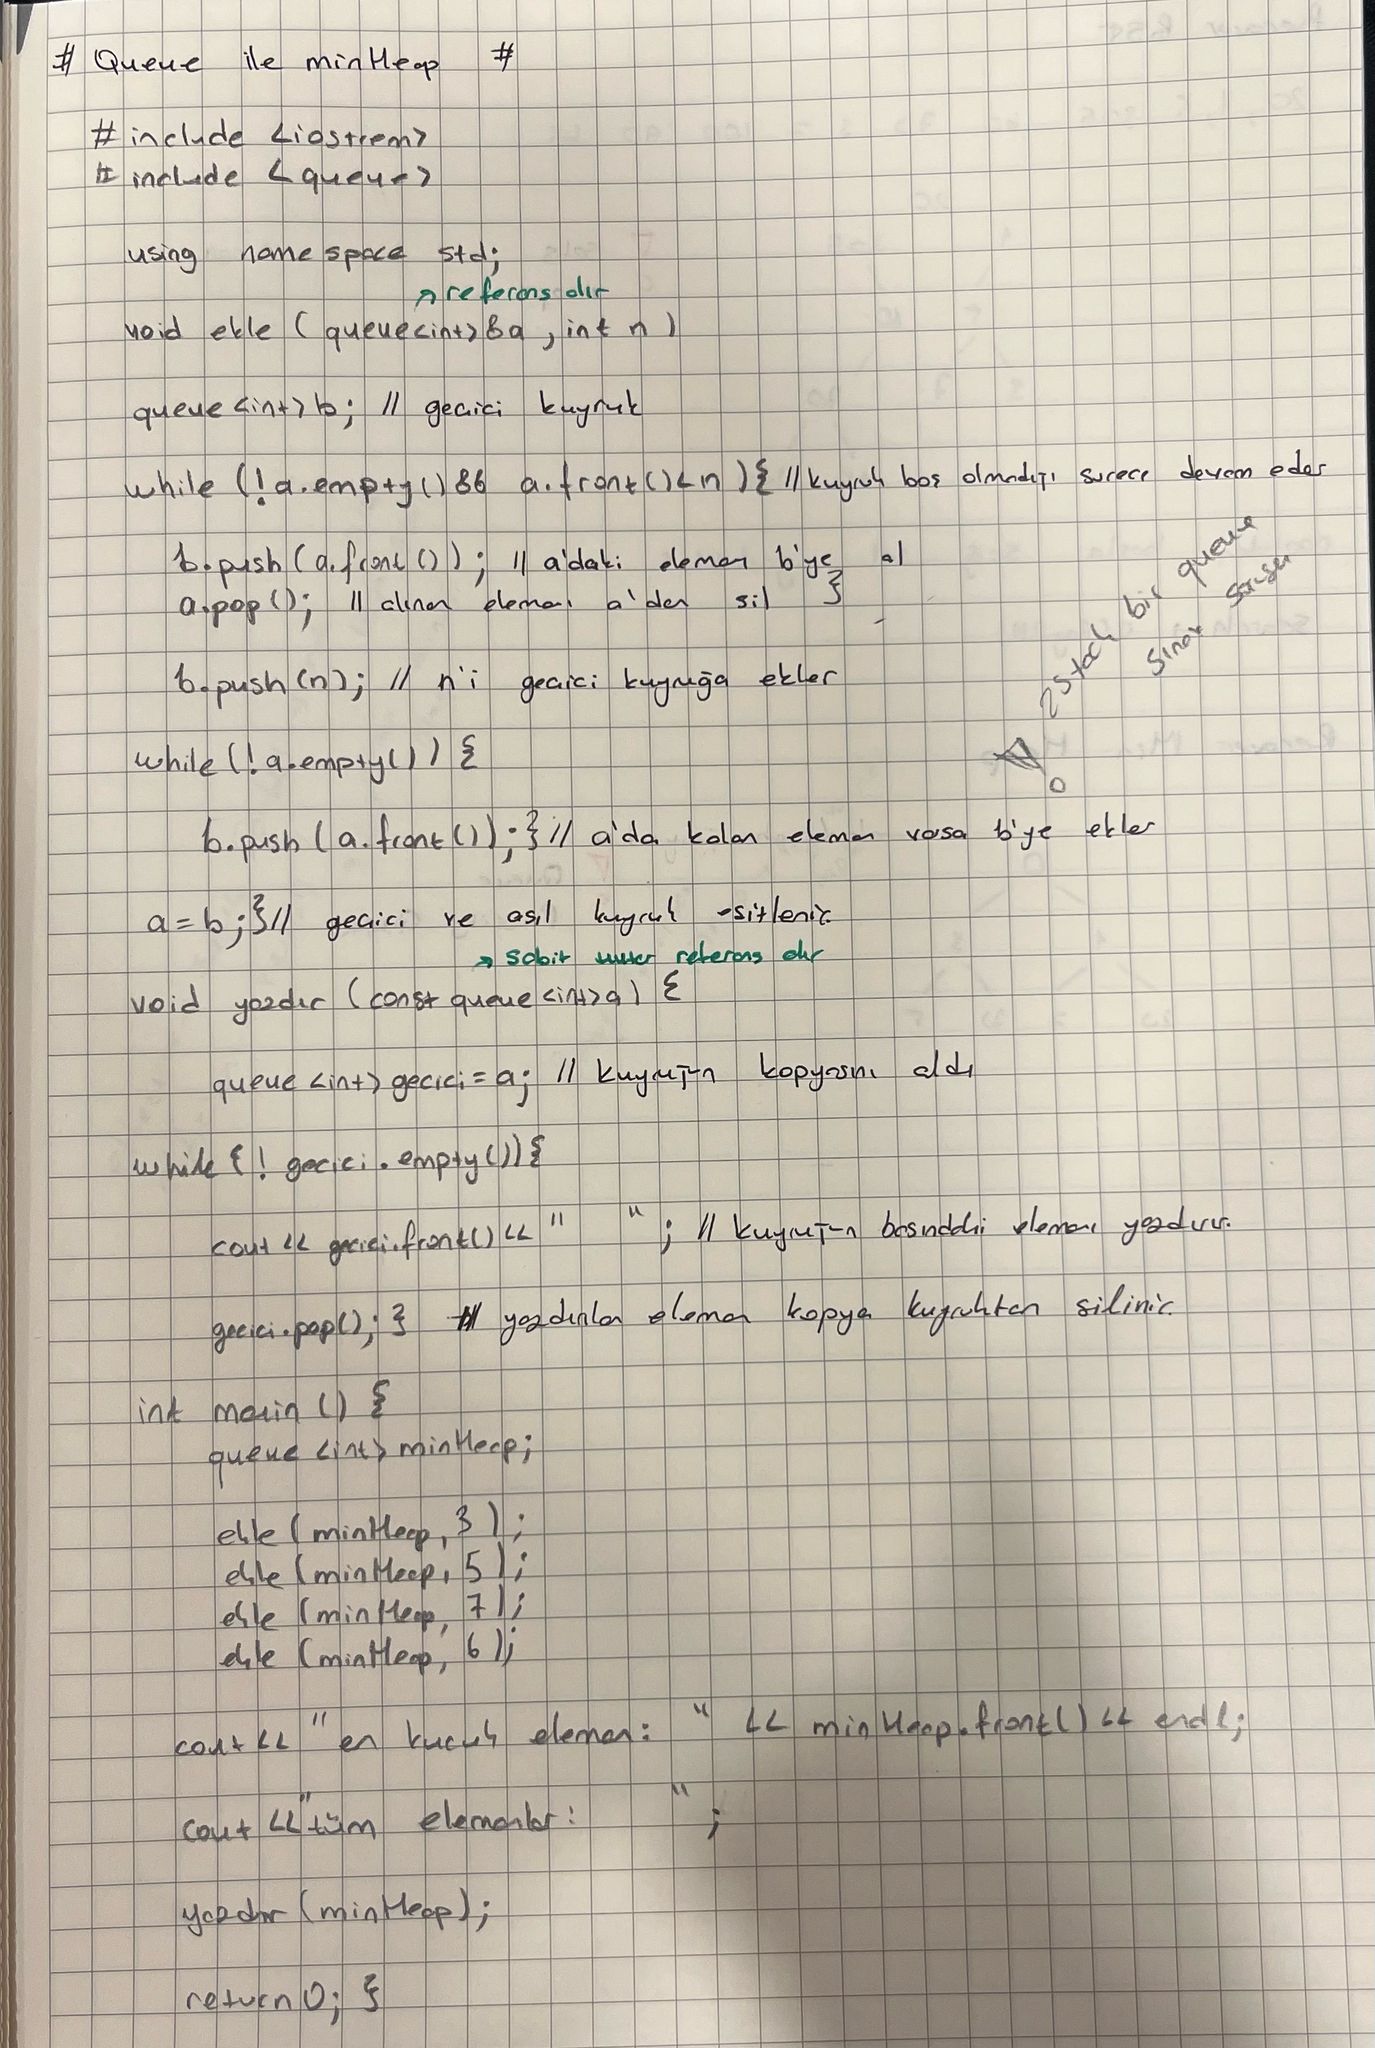 # Queue ile minHeap #
# include <iostrem>
# include <queue>
using namespace std;
↗ referans dır
void ekle ( queue<int>&a , int n )
queue<int> b; // gecici kuyruk
while (! a.empty() && a.front() < n ) { // kuyruk boş olmadığı surece devam eder
b.push( a.front() ); // a'daki eleman b'ye al
a.pop(); // alınan elemanı a'dan sil }
2 stack bir queue
Sınav Sorusu
b.push(n); // n'i gecici kuyruğa ekler
while (! a.empty() ) {
b.push (a.front()); } // a'da kalan eleman varsa b'ye ekler
a = b ; } // gecici ve asıl kuyruk esitlenir.
→ sabit referans dır
void yazdır (const queue<int>a) {
queue <int> gecici = a; // kuyruğun kopyasını aldı
while { ! gecici . empty()) {
cout << gecici.front() << " " ; // kuyruğun basındaki elemanı yazdırır.
gecici.pop(); } // yazdırılan eleman kopya kuyruktan silinir.
int main () {
queue <int> minHeap;
ekle ( minHeap, 3 ) ;
ekle (minHeap, 5 );
ekle (minHeap, 7 );
ekle (minHeap, 6 );
cout << " en kucuk eleman: " << minHeap.front() << endl;
cout << "tüm elemanlar: " ;
yazdır (minHeap);
return 0; }